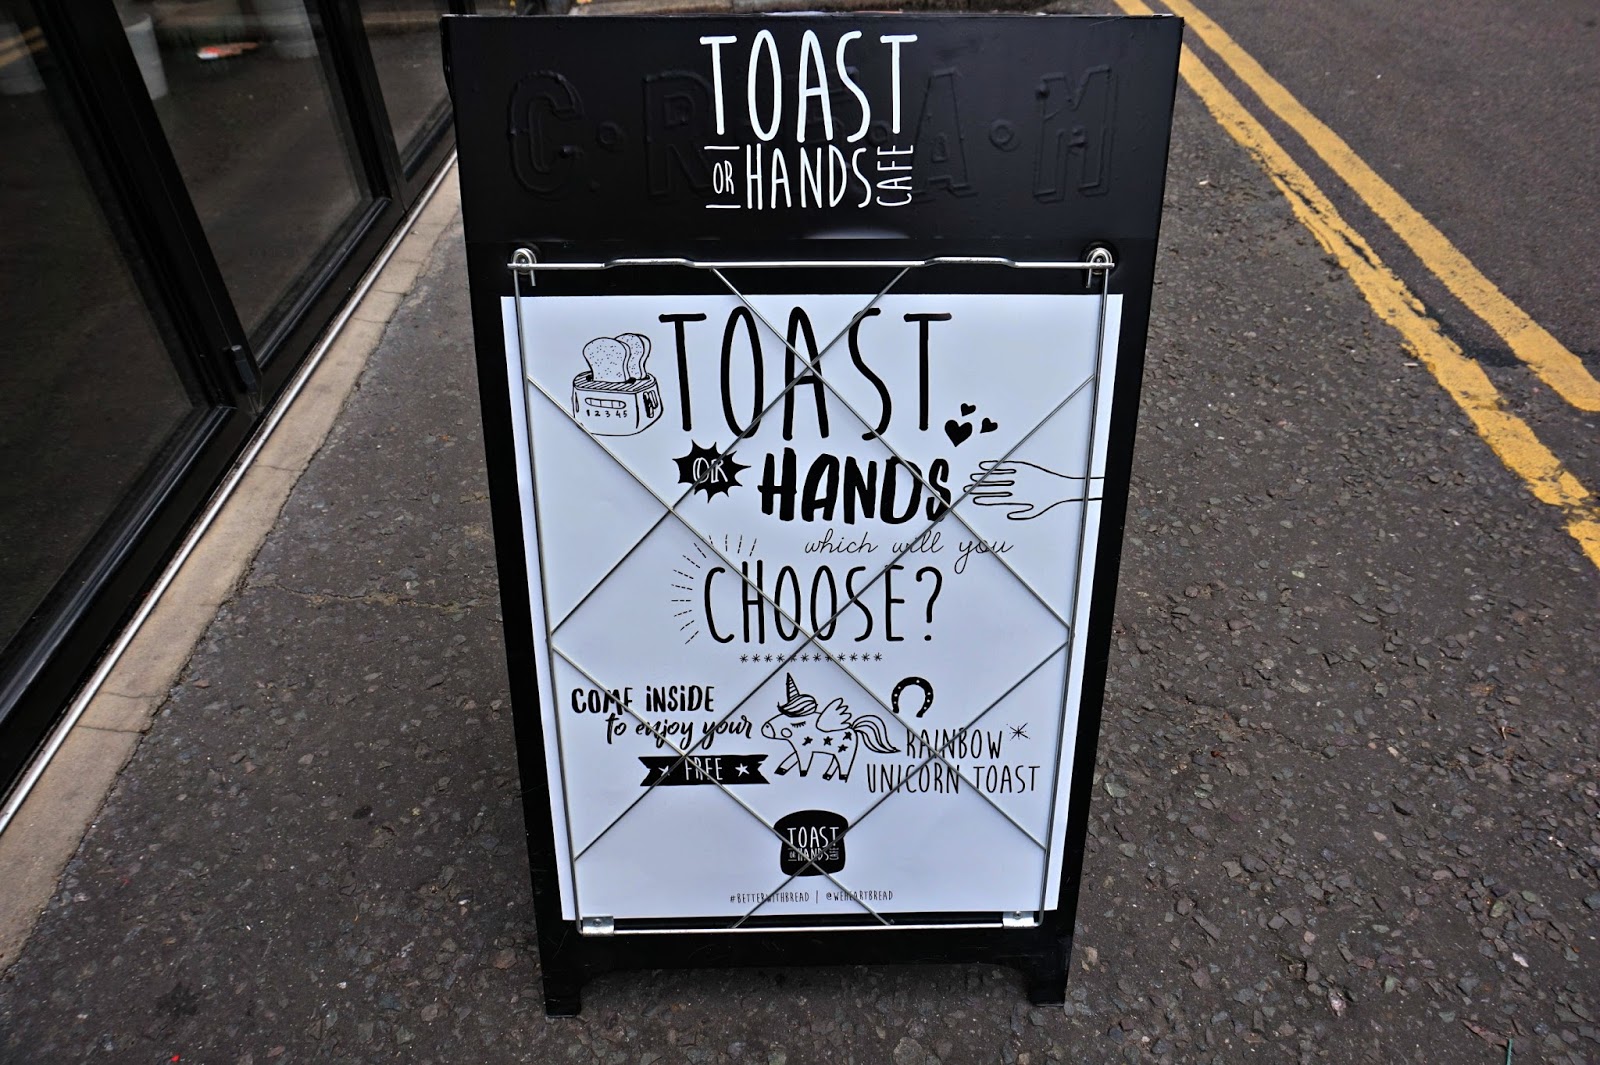 C·R·E·A·M
TOAST
OR HANDS CAFE
TOAST
1 2 3 4 5
OR HANDS
which will you
CHOOSE?
COME INSIDE
to enjoy your
FREE
RAINBOW
UNICORN TOAST
TOAST
OR HANDS CAFE
#BETTERWITHBREAD | @WEHEARYBREAD